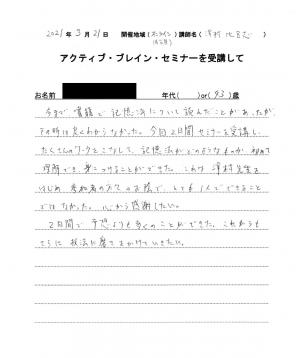 2021年 3月 21日 開催地域(オンライン)講師名( )
アクティブ・ブレイン・セミナーを受講して
お名前 年代( )or( 43 )歳
今まで書籍で記憶法について読んだことがあったが、
その時は良くわからなかった。今回2日間セミナーを受講し、
たくさんのワークをこなして、記憶法がどのようなものか初めて
理解でき、身につけることができた。これは 澤村先生を
はじめ、参加者の方々のお陰で、とても1人でできること
ではなかった。心から感謝したい。
2日間で予想よりも多くのことができた。これからも
さらに技法に磨きをかけていきたい。